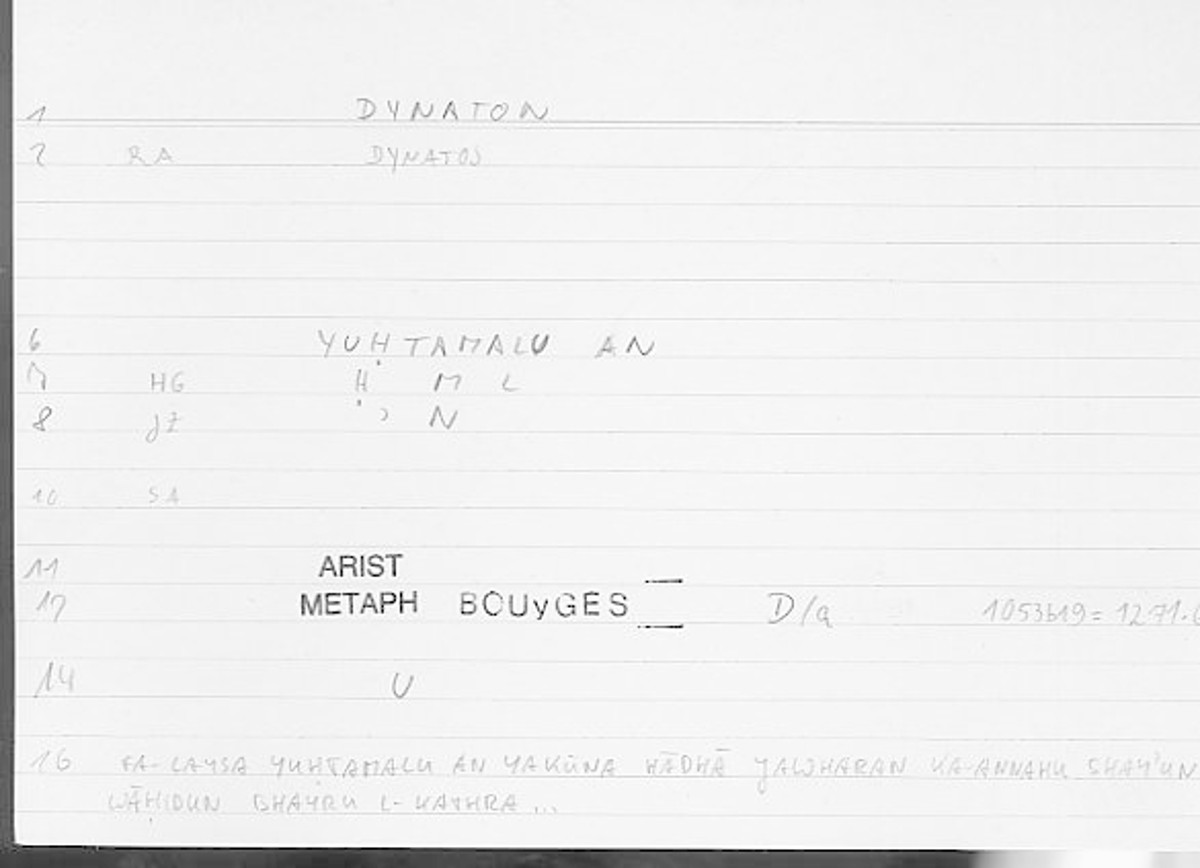 1 DYNATON
2 RA DYNATOS
6 YUḤTAMALU AN
7 HG Ḥ M L
8 JZ ʾ N
10 SA
11 ARIST
12 METAPH BOUyGES D/a 1053b19= 1271.6
14 U
16 FA-LAYSA YUḤTAMALU AN YAKŪNA HĀDHĀ JAWHARAN KA-ANNAHU SHAYʾUN
WĀḤIDUN GHAYRU L-KATHRA ...